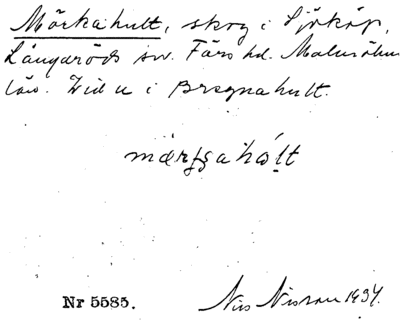 Mörkahult, skog i Sjököp,
Långaröds sn. Färs hd. Malmöhus
län. Vid u i Bregnahult.
mærʄgahólt
Nr 5585.
Nils Nilsson 1934.